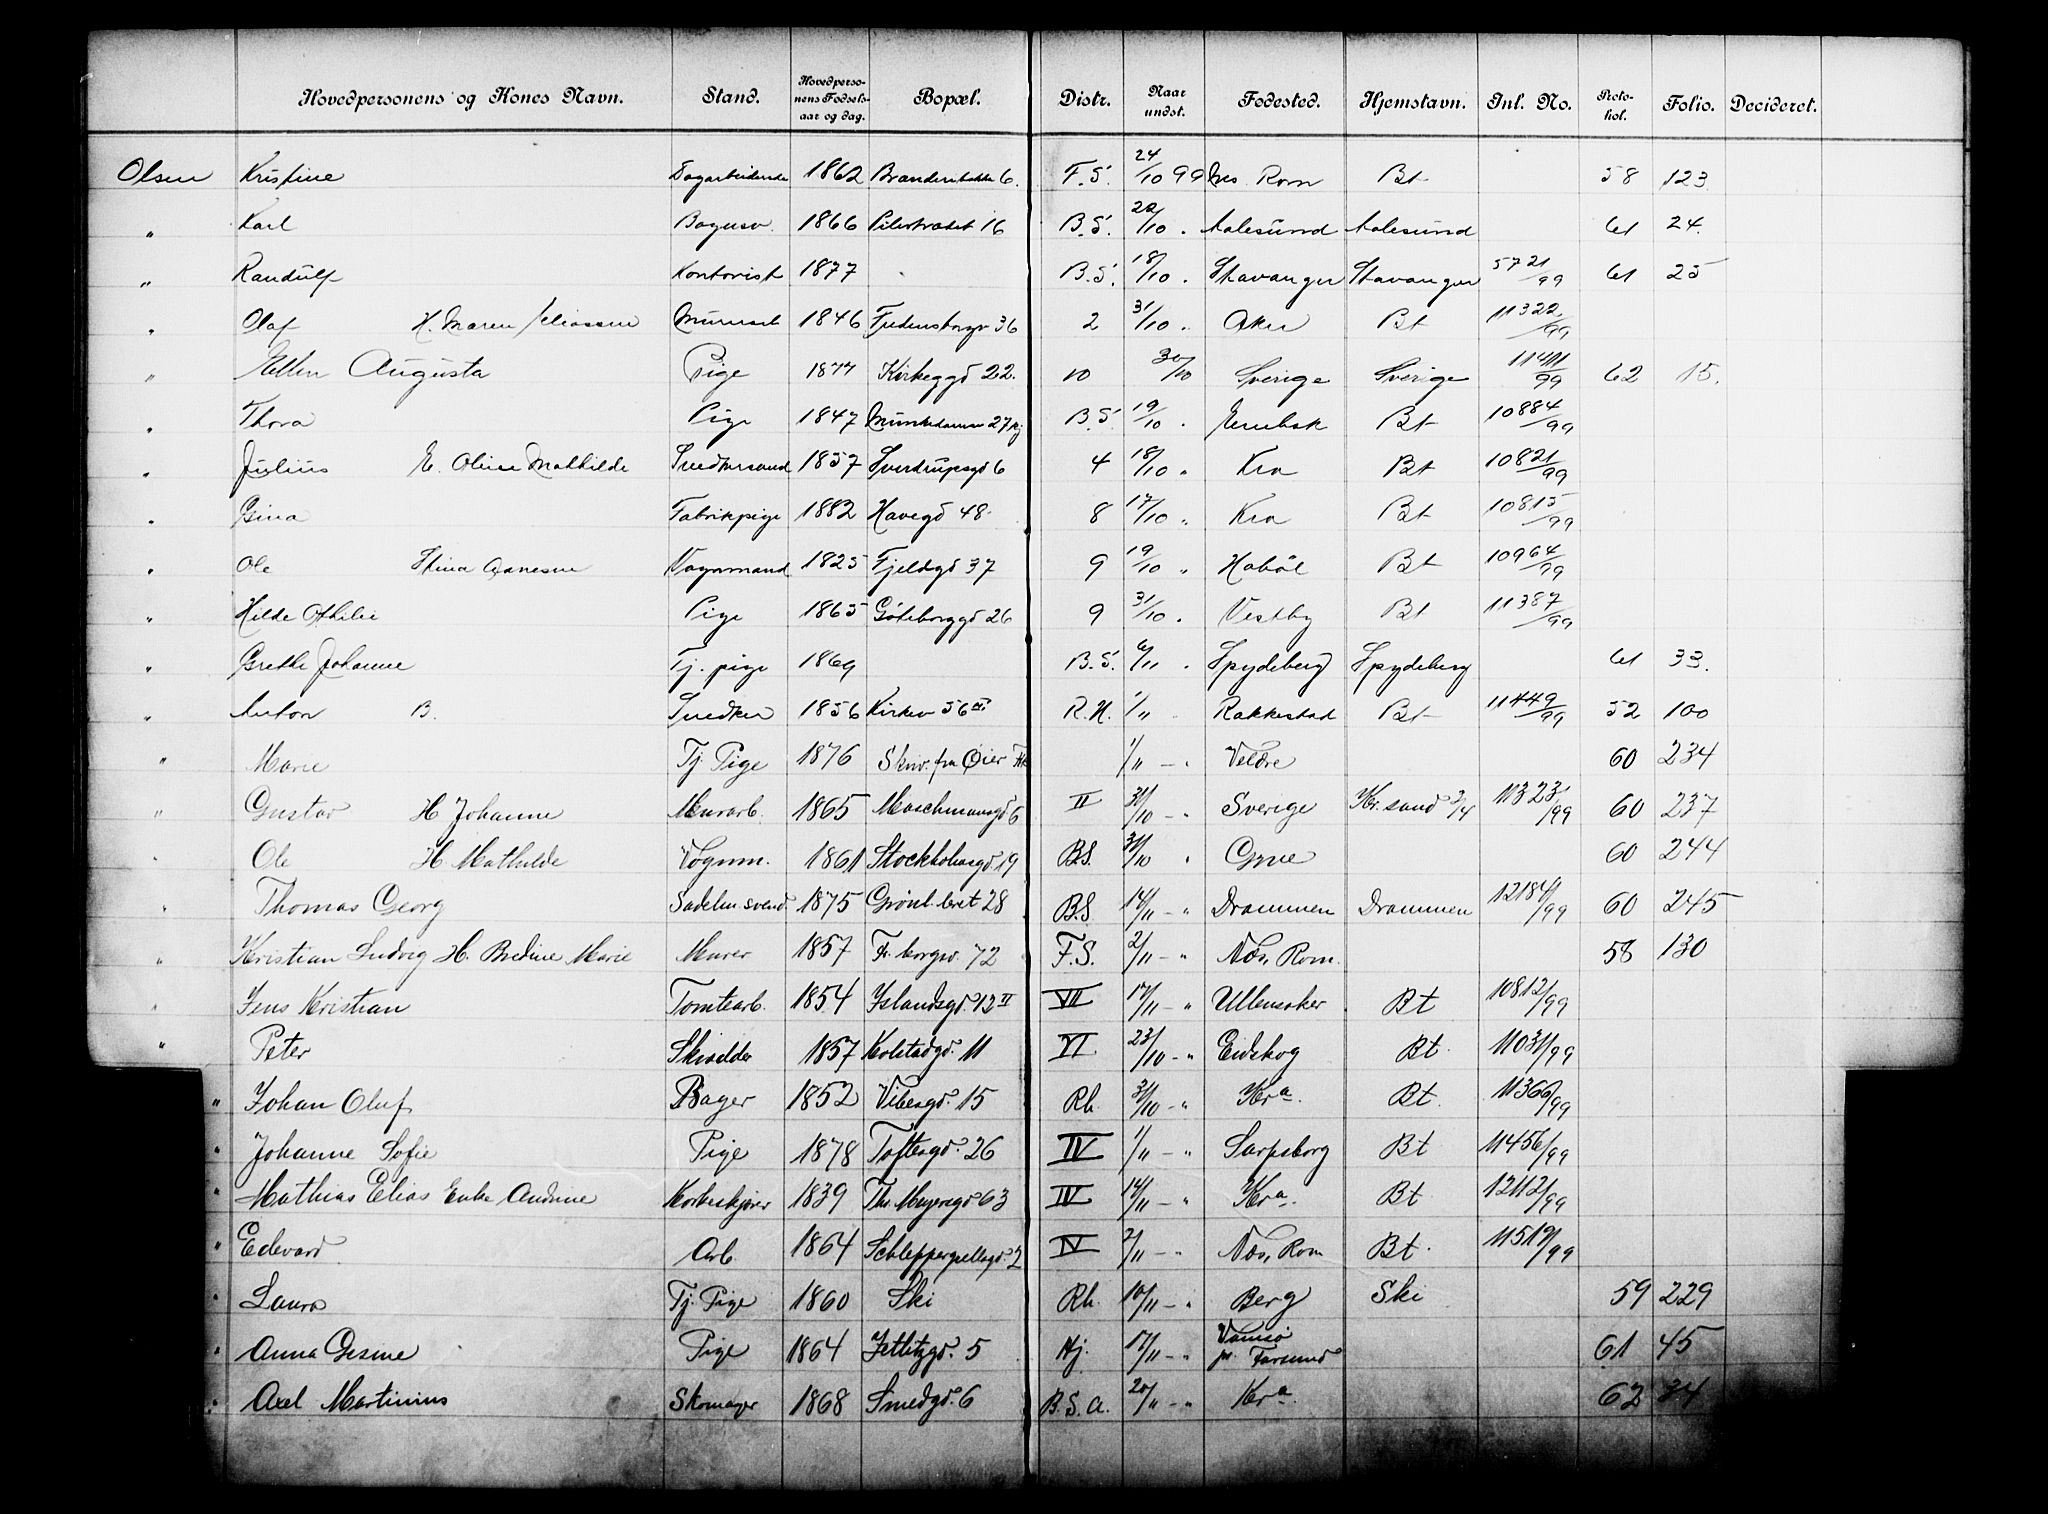 Hovedpersonens og Kones Navn. Stand. Hovedperso-nens Fødsels-aar og dag. Bopæl. Distr. Naar undst. Fødested. Hjemstavn. Inl. No. Proto-kol. Folio. Decideret.
Olsen Kristine Dagarbeidende 1862 6. F.S. 24/10 99 Nes Rom Bt 58 123
" Karl Bagersv. 1866 Pilestrædet 16 B.S. 22/10 " Aalesund Aalesund 61 24.
" Randulf Kontorist 1877 B.S. 18/10 " Stavanger Stavanger 5721/99 61 25
" Olaf H. Maren Eliassen Murersv. 1846 Fredensborgv 36 2 31/10 " Aker Bt 11322/99
" Ellen Augusta Pige 1877 Kirkeggd 22. 10 30/10 Sverige Sverige 11411/99 62 15.
" Thora Pige 1847 Munkedamsv 27 B.S. 19/10 " Enebak Bt 10884/99
" Julius E. Oline Mathilde Snedkersvend 1857 Sverdrupsgd 6 4 18/10 " Kra Bt 10821/99
" Gina Fabrikpige 1882 Havegd 48 8 17/10 " Kra Bt 10815/99
" Ole Stina Aanesen Vognmand 1825 Fjeldgd 37 9 19/10 " Hobøl Bt 10964/99
" Hilde Othilie Pige 1865 Gøteborggd 26 9 31/10 " Vestby Bt 11387/99
" Grethe Johanne Tj. pige 1869 B.S. 6/11 " Spydeberg Spydeberg 61 33.
" Anton B. Snedker 1856 Kirkev 56 III R.H. 1/11 Rakkestad Bt 11449/99 52 100
" Marie Tj. Pige 1876 Skriv. fra Øier 1/11 - " Veldre 60 234
" Gustav H Johanne Murarb. 1865 Maschmansgd 6 II 31/10 - " Sverige Kr.sand 3/4 11323/99 60 237
" Ole H. Mathilde Vognm. 1861 Stockholmsgd 19 B.S. 31/10 " Grue 60 244
" Thomas Georg Sadelm. svend 1875 Grønl. leret 28 B.S. 14/11 - " Drammen Drammen 12184/99 60 245
" Kristian Ludvig H. Bredine Marie Murer 1857 Fr. borgsv. 72 F.S. 2/11 - " Næs, Rom. 58 130
" Jens Kristian Tomtearb. 1854 Islandsgd. 12 II VII 17/11 - " Ullensaker Bt 10812/99
" Peter Skrædder 1857 Kolstadgd. 11 VI 23/10 - " Eidskog Bt. 11031/99
" Johan Oluf Bager 1852 Vibesgd. 15 Rh. 31/10 - " Kra. Bt. 11366/99
" Johanne Sofie Pige 1878 Toftesgd. 26 IV 1/11 - " Sarpsborg Bt 11456/99
" Mathias Elias Enke Andrine Korkeskjærer 1839 Th. Meyersgd 63 IV 14/11 - " Kra. Bt 12112/99
" Edevard Arb. 1864 Schleppegrellsgd. 2 IV 2/11 - " Næs, Rom Bt. 11519/99
" Laura Tj. Pige 1860 Ski Rh. 10/11 - " Berg Ski 59 229
" Anna Gesine Pige 1864 Jetletzgd. 5 Hj. 17/11 - " Vansø pr. Farsund 61 45
" Axel Martinius Skomager 1868 Smedgd. 6 B.S.A. 20/11 - " Kra. 62 34